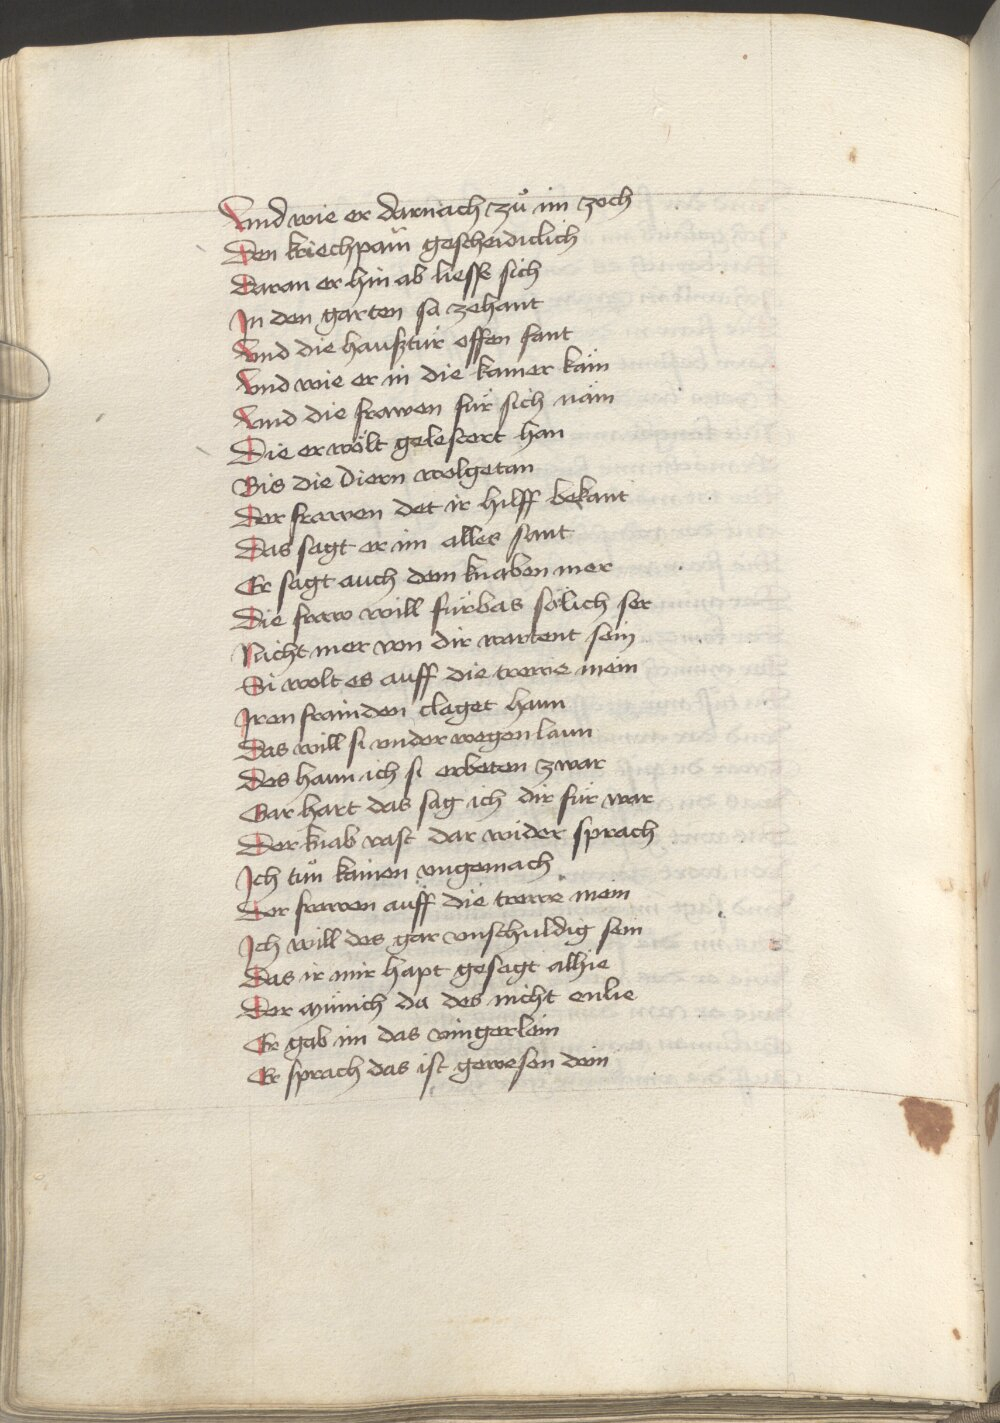 Vnd wie er darnach zů im zoch
Den kriechpaŭm geschaidiclich
Daran er hin ab liesß sich
In den garten sa zehant
Vnd die haußtür offen fant
Vnd wie er in die kamer käm
Vnd die frawen für sich näm
Die er wölt gelestert han
Bis die diern wolgetan
Der frawen det ir hilff bekant
Das sagt er im alles sant
Er sagt auch dem knaben mer
Die fraw will fürbas sölich ser
Nicht mer von dir wartent sein
Si wolt es auff die trewe mein
Iren frainden claget haun
Das will si vnder wegen laun
Des haun ich si erbeten zwar
Gar hart das sag ich dir für war
Der knab vast dar wider sprach
Ich tůn kainen vngemach
Der frawen auff die trewe mein
Ich will des gar vnschuldig sein
Das ir mir hapt gesagt alhie
Der münich da des nicht enlie
Er gab im das vingerlein
Er sprach das ist gewesen dein